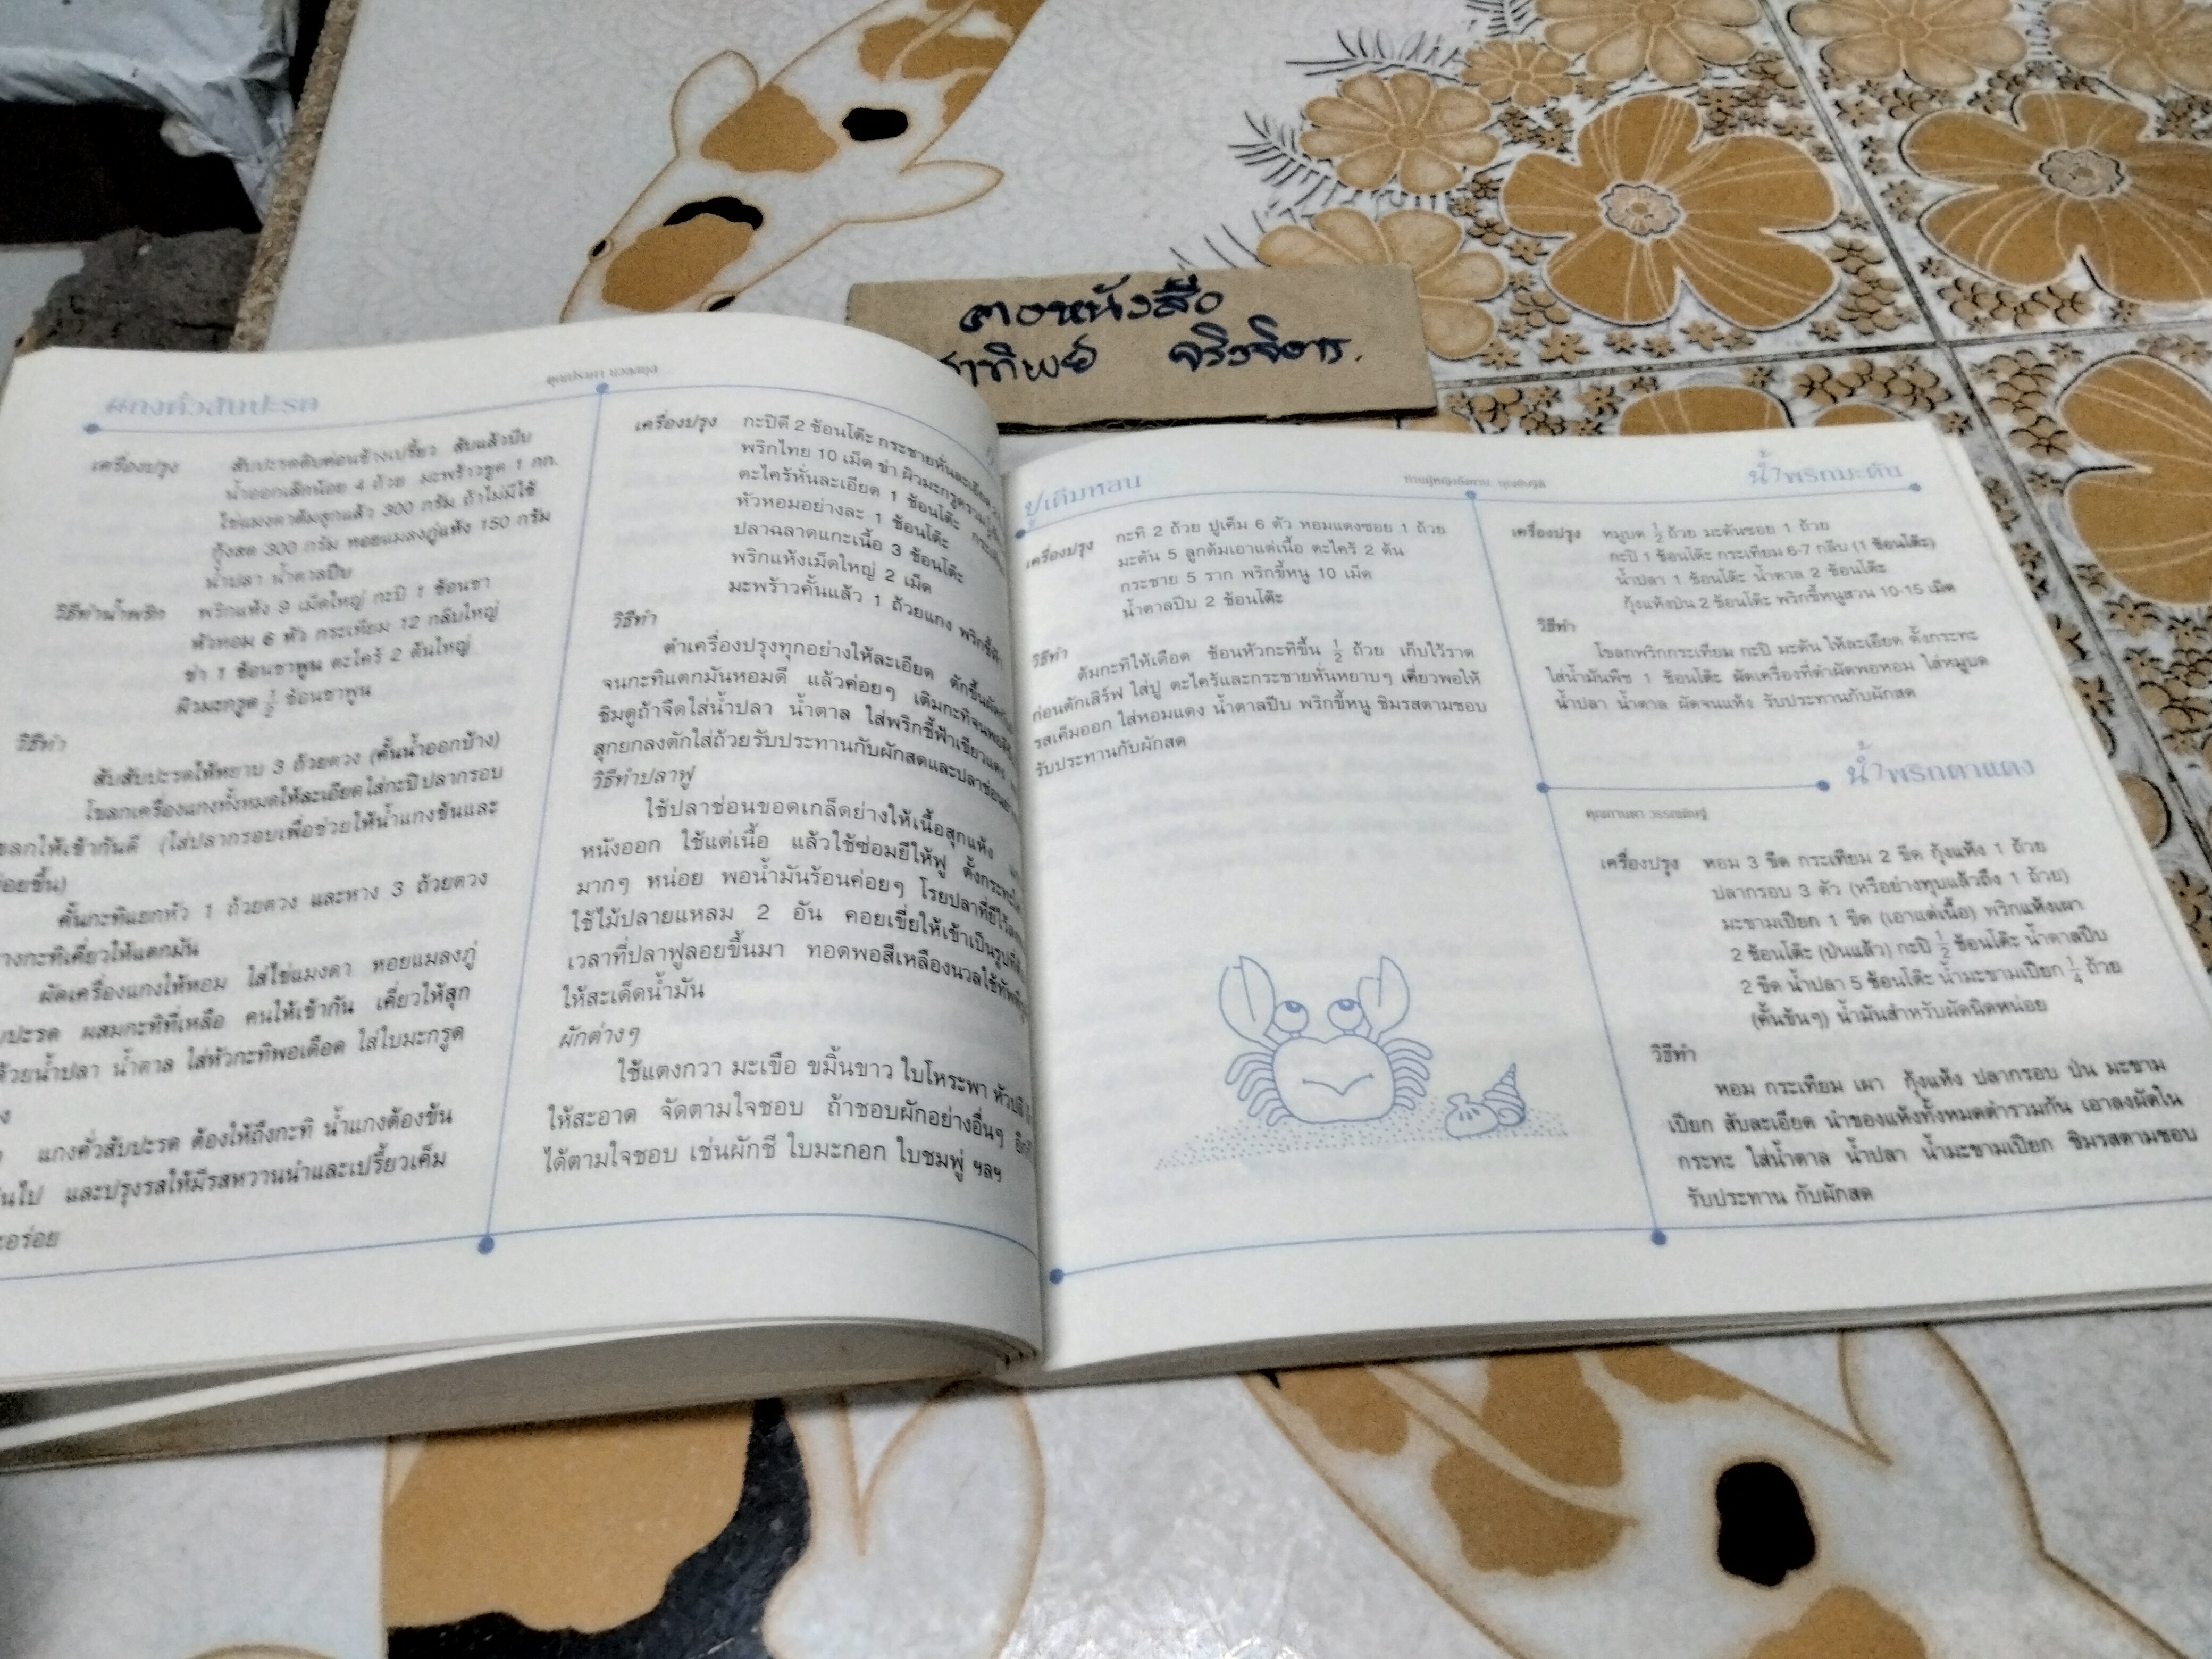 ฅอหนังสือ
จริงจิตร.
แกงคั่วสับปะรด
เครื่องปรุง สับปะรดดิบค่อนข้างเปรี้ยว สับแล้วบีบ
น้ำออกเล็กน้อย 4 ถ้วย มะพร้าวขูด 1 กก.
ไข่แมงดาต้มสุกแล้ว 300 กรัม ถ้าไม่มีใช้
กุ้งสด 300 กรัม หอยแมลงภู่แห้ง 150 กรัม
น้ำปลา น้ำตาลปีบ
วิธีทำน้ำพริก พริกแห้ง 9 เม็ดใหญ่ กะปิ 1 ช้อนชา
หัวหอม 6 หัว กระเทียม 12 กลีบใหญ่
ข่า 1 ช้อนชาพูน ตะไคร้ 2 ต้นใหญ่
ผิวมะกรูด ½ ช้อนชาพูน
วิธีทำ
สับสับปะรดให้หยาบ 3 ถ้วยตวง (คั้นน้ำออกบ้าง)
โขลกเครื่องแกงทั้งหมดให้ละเอียดใส่กะปิปลากรอบ
ขลกให้เข้ากันดี (ใส่ปลากรอบเพื่อช่วยให้น้ำแกงข้นและ
ร่อยขึ้น)
คั้นกะทิแยกหัว 1 ถ้วยตวง และหาง 3 ถ้วยตวง
างกะทิเคี่ยวให้แตกมัน
ผัดเครื่องแกงให้หอม ใส่ไข่แมงดา หอยแมลงภู่
ปะรด ผสมกะทิที่เหลือ คนให้เข้ากัน เคี่ยวให้สุก
ด้วยน้ำปลา น้ำตาล ใส่หัวกะทิพอเดือด ใส่ใบมะกรูด
ง
แกงคั่วสับปะรด ต้องให้ถึงกะทิ น้ำแกงต้องข้น
นไป และปรุงรสให้มีรสหวานนำและเปรี้ยวเค็ม
ะอร่อย
เครื่องปรุง กะปิดี 2 ช้อนโต๊ะ กระชายหั่นละเอียด
พริกไทย 10 เม็ด ข่า ผิวมะกรูด
ตะไคร้หั่นละเอียด 1 ช้อนโต๊ะ
หัวหอมอย่างละ 1 ช้อนโต๊ะ
ปลาฉลาดแกะเนื้อ 3 ช้อนโต๊ะ
พริกแห้งเม็ดใหญ่ 2 เม็ด
มะพร้าวคั้นแล้ว 1 ถ้วยแกง พริกชี้ฟ้า
วิธีทำ
ตำเครื่องปรุงทุกอย่างให้ละเอียด ตักขึ้นผัด
จนกะทิแตกมันหอมดี แล้วค่อยๆ เติมกะทิจน
ชิมดูถ้าจืดใส่น้ำปลา น้ำตาล ใส่พริกชี้ฟ้าเขียวแดง
สุกยกลงตักใส่ถ้วยรับประทานกับผักสดและปลาช่อน
วิธีทำปลาฟู
ใช้ปลาช่อนขอดเกล็ดย่างให้เนื้อสุกแห้ง
หนังออก ใช้แต่เนื้อ แล้วใช้ซ่อมยีให้ฟู ตั้งกระทะ
มากๆ หน่อย พอน้ำมันร้อนค่อยๆ โรยปลาที่ยีไว้
ใช้ไม้ปลายแหลม 2 อัน คอยเขี่ยให้เข้าเป็นรูป
เวลาที่ปลาฟูลอยขึ้นมา ทอดพอสีเหลืองนวลใช้ทัพพี
ให้สะเด็ดน้ำมัน
ผักต่างๆ
ใช้แตงกวา มะเขือ ขมิ้นขาว ใบโหระพา หัวปลี
ให้สะอาด จัดตามใจชอบ ถ้าชอบผักอย่างอื่นๆ
ได้ตามใจชอบ เช่นผักชี ใบมะกอก ใบชมพู่ ฯลฯ
ปูเค็มหลน
เครื่องปรุง กะทิ 2 ถ้วย ปูเค็ม 6 ตัว หอมแดงซอย 1 ถ้วย
มะดัน 5 ลูกต้มเอาแต่เนื้อ ตะไคร้ 2 ต้น
กระชาย 5 ราก พริกขี้หนู 10 เม็ด
น้ำตาลปีบ 2 ช้อนโต๊ะ
วิธีทำ
ต้มกะทิให้เดือด ช้อนหัวกะทิขึ้น ½ ถ้วย เก็บไว้ราด
ก่อนตักเสิร์ฟ ใส่ปู ตะไคร้และกระชายหั่นหยาบๆ เคี่ยวพอให้
รสเค็มออก ใส่หอมแดง น้ำตาลปีบ พริกขี้หนู ชิมรสตามชอบ
รับประทานกับผักสด
น้ำพริกมะดัน
เครื่องปรุง หมูบด ½ ถ้วย มะดันซอย 1 ถ้วย
กะปิ 1 ช้อนโต๊ะ กระเทียม 6-7 กลีบ (1 ช้อนโต๊ะ)
น้ำปลา 1 ช้อนโต๊ะ น้ำตาล 2 ช้อนโต๊ะ
กุ้งแห้งป่น 2 ช้อนโต๊ะ พริกขี้หนูสวน 10-15 เม็ด
วิธีทำ
โขลกพริกกระเทียม กะปิ มะดัน ให้ละเอียด ตั้งกระทะ
ใส่น้ำมันพืช 1 ช้อนโต๊ะ ผัดเครื่องที่ตำผัดพอหอม ใส่หมูบด
น้ำปลา น้ำตาล ผัดจนแห้ง รับประทานกับผักสด
น้ำพริกตาแดง
เครื่องปรุง หอม 3 ขีด กระเทียม 2 ขีด กุ้งแห้ง 1 ถ้วย
ปลากรอบ 3 ตัว (หรือย่างทุบแล้วถึง 1 ถ้วย)
มะขามเปียก 1 ขีด (เอาแต่เนื้อ) พริกแห้งเผา
2 ช้อนโต๊ะ (ป่นแล้ว) กะปิ ½ ช้อนโต๊ะ น้ำตาลปีบ
2 ขีด น้ำปลา 5 ช้อนโต๊ะ น้ำมะขามเปียก ¼ ถ้วย
(คั้นข้นๆ) น้ำมันสำหรับผัดนิดหน่อย
วิธีทำ
หอม กระเทียม เผา กุ้งแห้ง ปลากรอบ ป่น มะขาม
เปียก สับละเอียด นำของแห้งทั้งหมดตำรวมกัน เอาลงผัดใน
กระทะ ใส่น้ำตาล น้ำปลา น้ำมะขามเปียก ชิมรสตามชอบ
รับประทาน กับผักสด